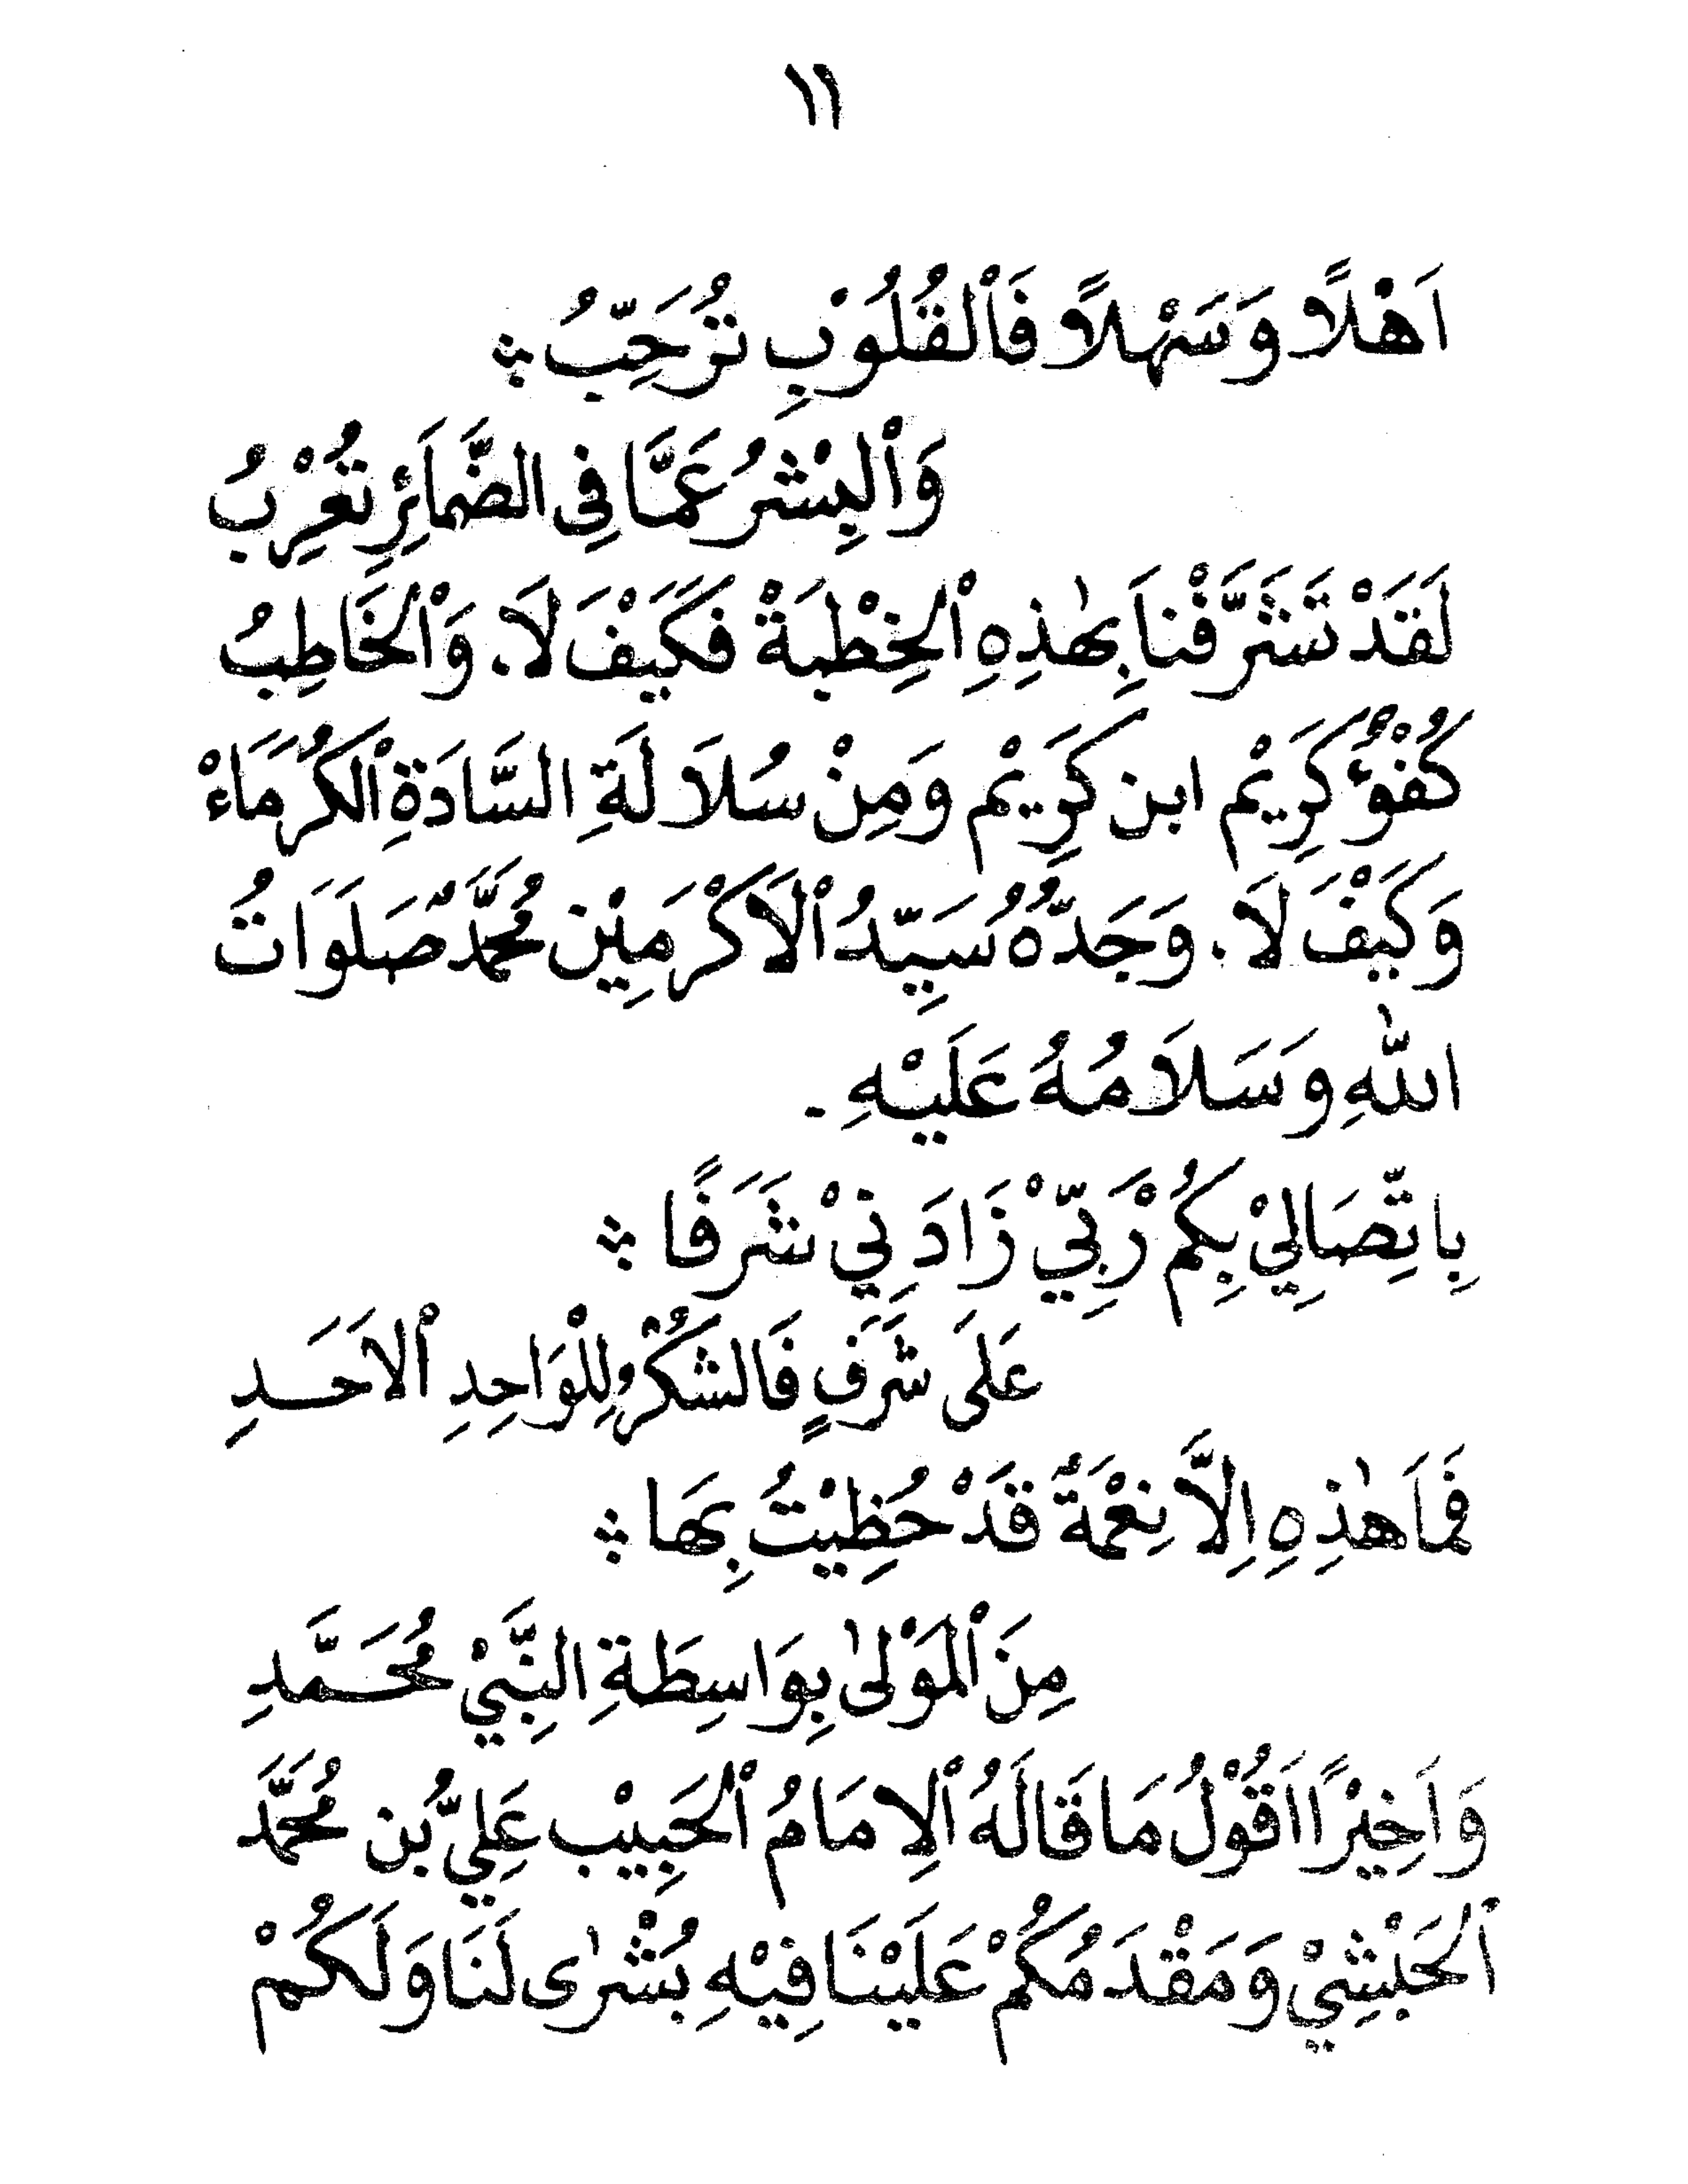 ١١
اَهْلًا وَسَهْلًا فَاْلقُلُوْبِ تُرَحِّبُ ؞
وَاْلبِشْرُ عَمَّا فِى الضَّمَائِرِ تُعْرِبُ
لَقَدْ تَشَرَّفْنَا بِهٰذِهِ اْلخِطْبَةْ فَكَيْفَ لَا. وَاْلخَاطِبُ
كُفْؤٌ كَرِيْم ابن كَرِيْم وَمِنْ سُلَالَةِ السَّادَةِ اْلكُرَمَاءْ
وَكَيْفَ لَا. وَجَدُّهُ سَيِّدُ اْلاَكْرَمِيْن مُحَمَّدٌ صَلَوَاتُ
اللهِ وَسَلَامُهُ عَلَيْهِ .
بِاتِّصَالِيْ بِكُمْ رَبِّيْ زَادَنِيْ شَرَفًا ؞
عَلَى شَرَفٍ فَالشُكْرُ لِلْوَاحِدِ اْلاَحَدِ
فَمَا هٰذِهِ اِلَّا نِعْمَةٌ قَدْ حُظِيْتُ بِهَا ؞
مِنَ اْلمَوْلىٰ بِوَاسِطَةِ النَّبِيْ مُحَمَّدِ
وَاَخِيْرًا اَقُوْلُ مَا قَالَهُ اْلاِمَامُ اْلحَبِيْب عَلِيُّ بن مُحَمَّدَ
اْلحَبْشِيْ وَمَقْدَمُكُمْ عَلَيْنَا فِيْهِ بُشْرٰى لَنَا وَلَكُمْ